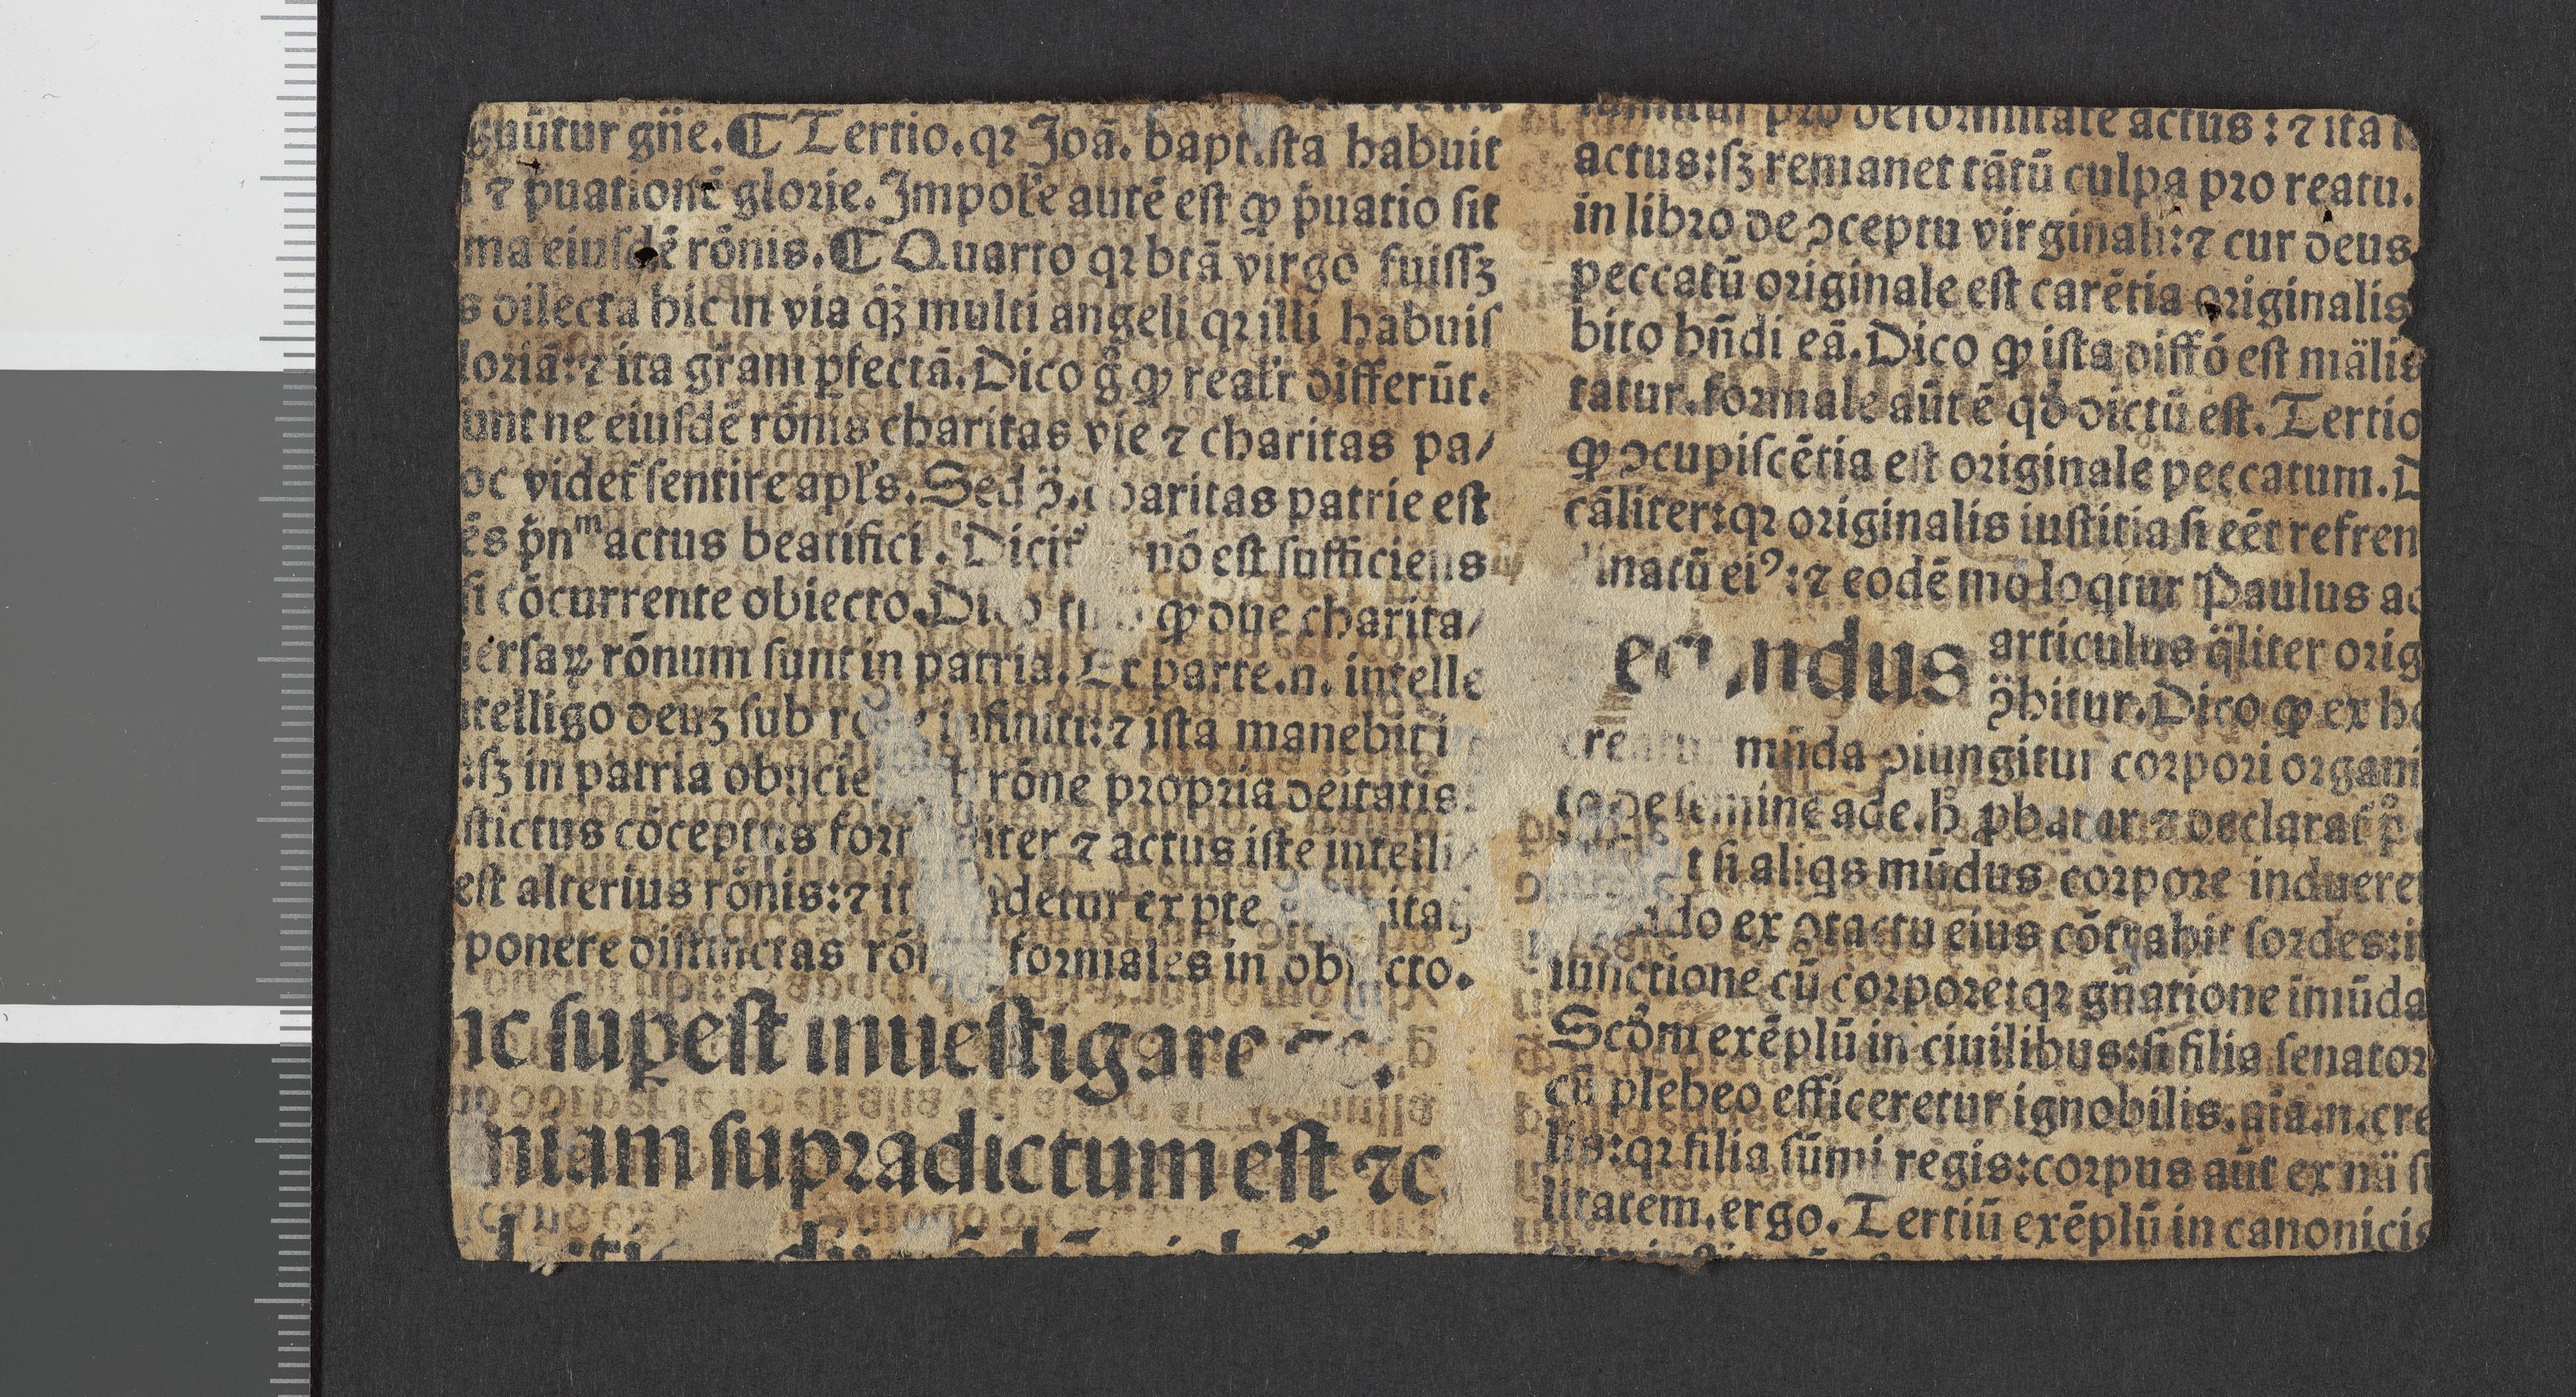 guūtur gn̄e. ¶ Tertio. qꝛ Joā. baptista habuit
i ⁊ p̄uationē gloꝛie. Impoſ̄le autē eſt ꝙ p̄uatio ſit
ma eiuſdē rōnis. ¶ Quarto qꝛ btā virgo fuiſſꝫ
s dilecta hic in via q̄ꝫ multi angeli qꝛ illi habuiſ
loꝛiā: ⁊ ita gr̄am ꝑfectā. Dico g̊ ꝙ realr̄ differūt.
unt ne eiuſdē rōnis charitas vie ⁊ charitas pa/
oc videt᷑ ſentire apl̄s. Sed ꝯ̈. charitas patrie eſt
ēs p̄nᵐ actus beatifici. Dicit᷑ nō eſt ſufficiens
ſi cōcurrente obiecto. Dico ꝙ due charita/
ierſaꝝ rōnum ſunt in patria. Ex parte .n. intelle
telligo deuꝫ ſub infiniti: ⁊ iſta manebit
:ſꝫ in patria rōne pꝛopꝛia deitatis:
ſtictus cōceptus ⁊ actus iſte intelli/
eſt alterius rōnis: ⁊ ex ꝑte
ponere diſtinctas foꝛmales in
ic ſupeſt inueſtigare ⁊c.
niam ſupꝛadictum eſt ⁊c
pꝛo defoꝛmitate actus: ⁊ ita
actus: ſꝫ remanet tātū culpa pꝛo reatu.
in libꝛo de ꝯceptu virginali: ⁊ cur deus
peccatū oꝛiginale eſt carētia oꝛiginalis
bito hn̄di eā. Dico ꝙ iſta diffō eſt māl̄is
tatur. foꝛmale aūt ē qd̄ dictū eſt. Tertio
ꝙ ꝯcupiſcētia eſt oꝛiginale peccatum. D
cāliter: qꝛ oꝛiginalis iuſtitia ſi eēt refren
inatū eiꝰ: ⁊ eodē mō loqtur Paulus ad
ecundus articulus q̈liter oꝛig
ꝯ̈hitur. Dico ꝙ ex ho
creatur mūda ꝯiungitur coꝛpoꝛi oꝛgani
to de ſemine ade. h̊ ꝓbatur ⁊ declarat᷑ p̊
t ſi aliqs mūdus coꝛpoꝛe indueret
do ex ꝯtactu eius cōtrahit ſoꝛdes: i
iunctione cū coꝛpoꝛe: qꝛ gn̄atione īmūda
Scōm exēplū in ciuilibus: ſi filia ſenatoꝛ
cū plebeo efficeretur ignobilis. aīa .n. cre
lis: qꝛ filia ſūmi regis: coꝛpus aūt ex nā̈ ſ
litatem. ergo. Tertiū exēplū in canonicis